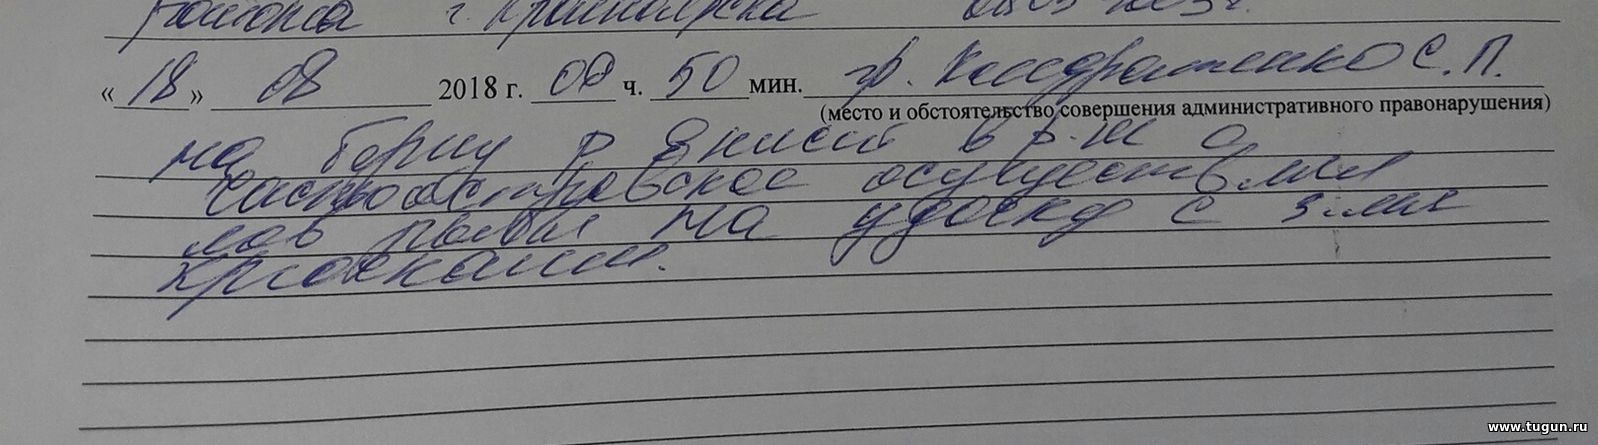 района г. Красноярска
« 18 » 08 2018 г. 00 ч. 50 мин. гр. Кондратенко С.П.
(место и обстоятельство совершения административного правонарушения)
на берегу р Енисей в р-не с
Частоостровское осуществлял
лов рыбы на удочку с 3-мя
крючками.
www.tugun.ru